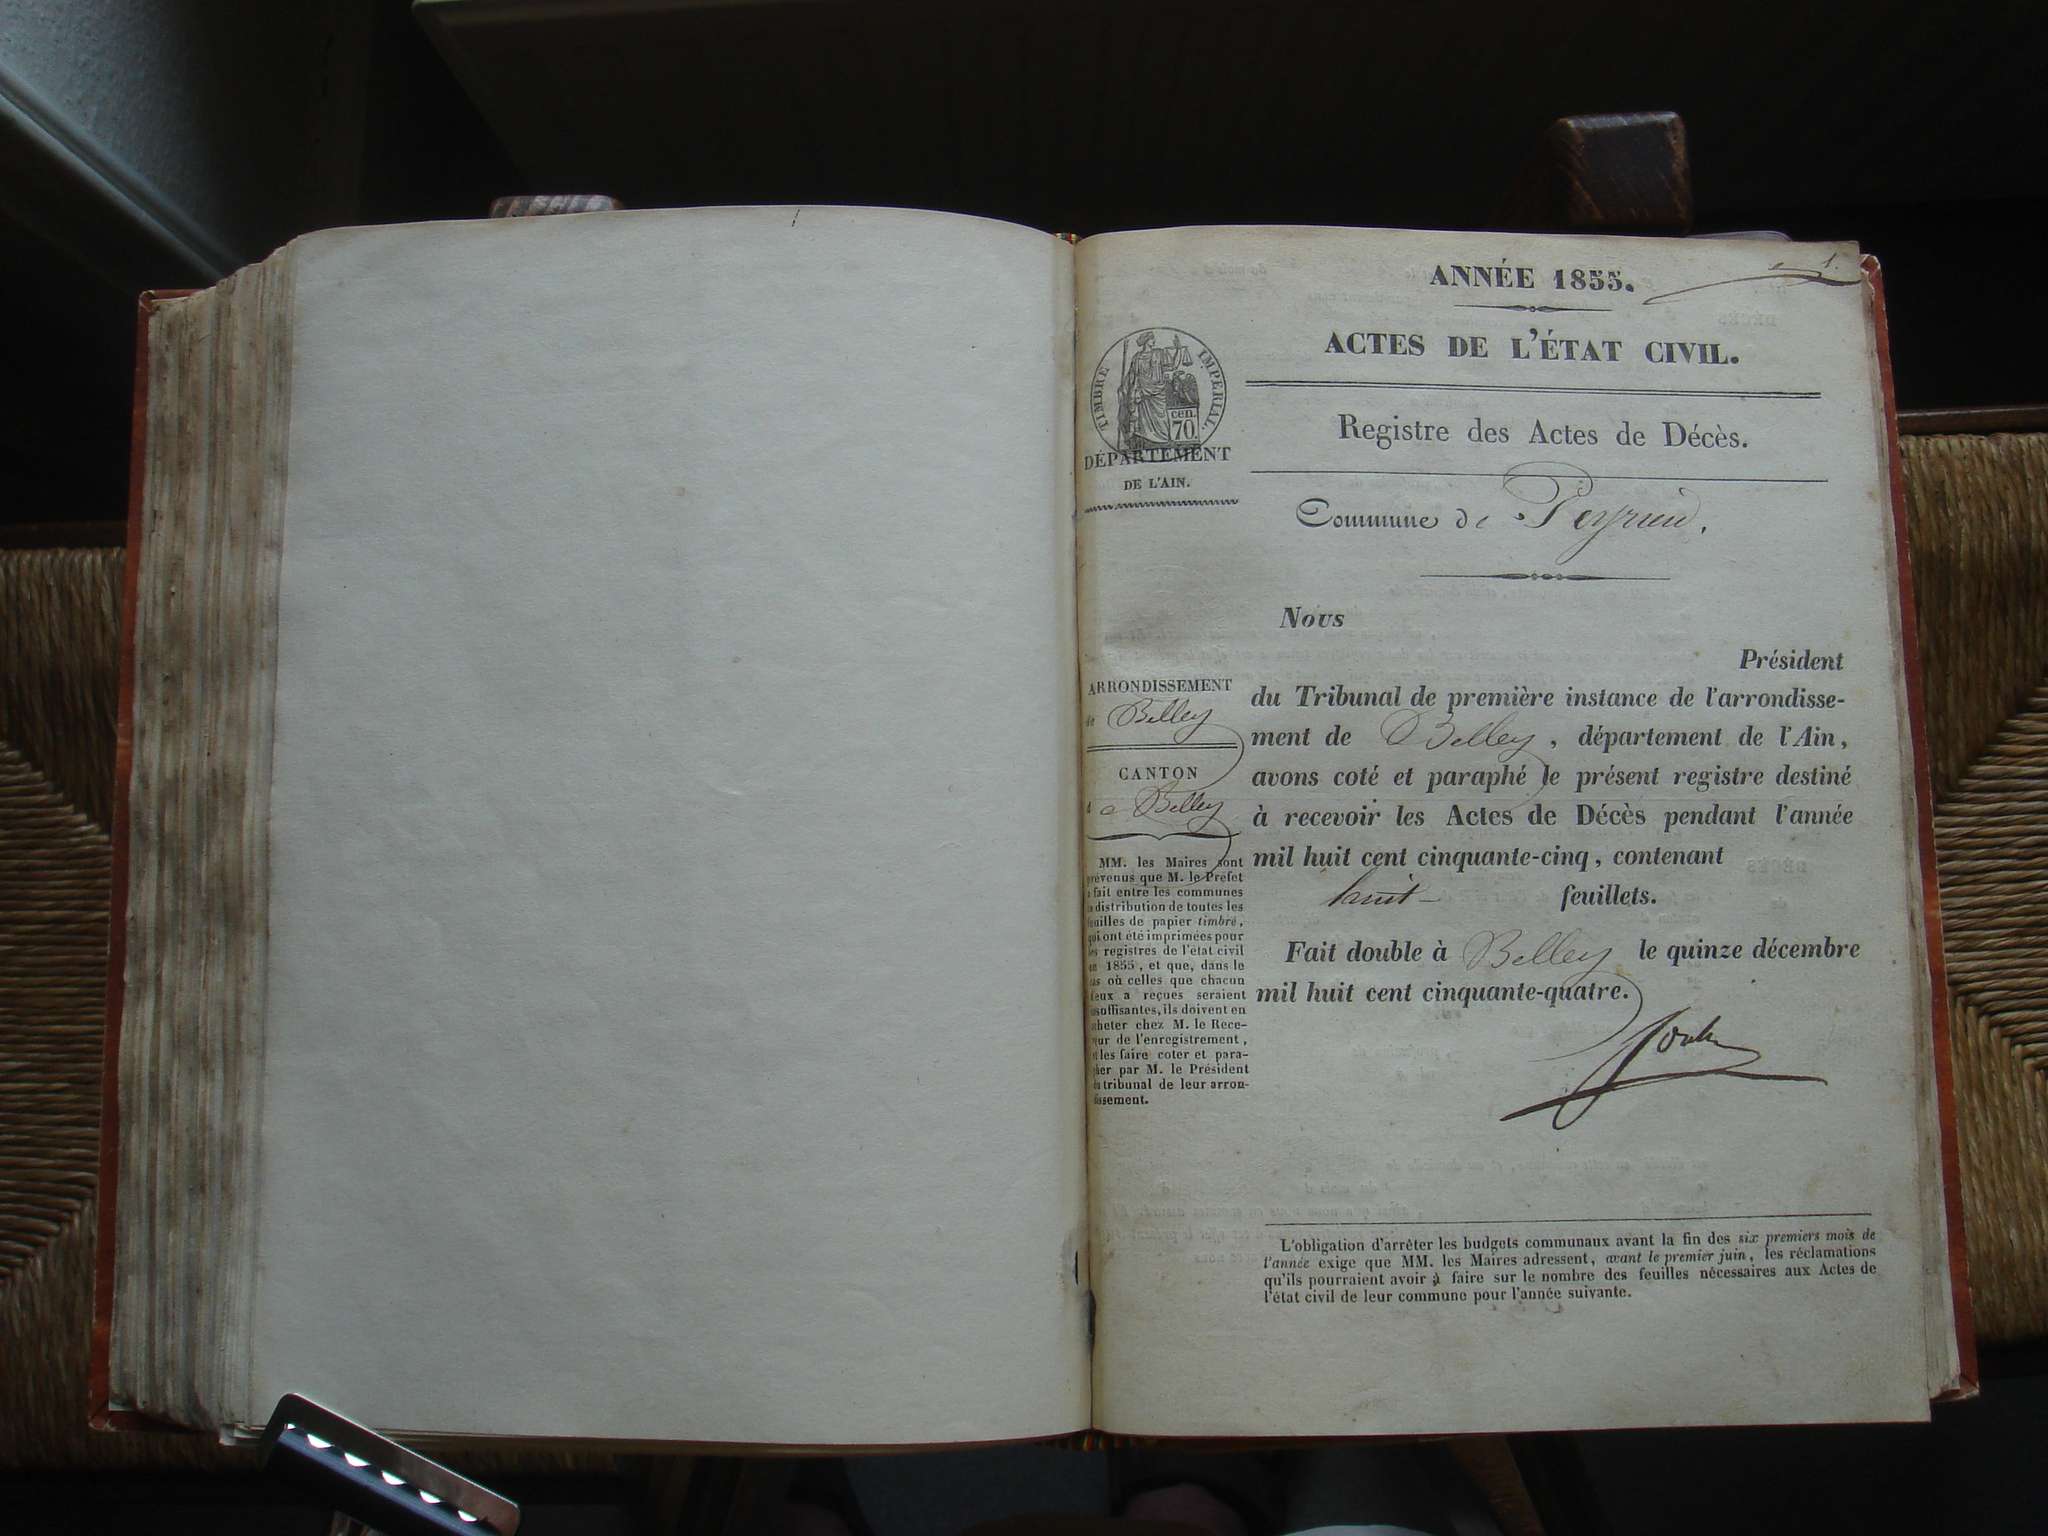 1.
ANNÉE 1855.
ACTES DE L'ÉTAT CIVIL.
TIMBRE IMPERIAL.
cen.
70
DÉPARTEMENT
DE L'AIN.
Registre des Actes de Décès.
Commune de Peyrieu.
ARRONDISSEMENT
de Belley
CANTON
de Belley
MM. les Maires sont
prévenus que M. le Préfet
a fait entre les communes
la distribution de toutes les
feuilles de papier timbré,
qui ont été imprimées pour
les registres de l'état civil
en 1855, et que, dans le
cas où celles que chacun
d'eux a reçues seraient
insuffisantes, ils doivent en
acheter chez M. le Rece-
veur de l'enregistrement,
et les faire coter et para-
pher par M. le Président
du tribunal de leur arron-
dissement.
Nous
Président
du Tribunal de première instance de l'arrondisse-
ment de Belley, département de l'Ain,
avons coté et paraphé le présent registre destiné
à recevoir les Actes de Décès pendant l'année
mil huit cent cinquante-cinq, contenant
huit feuillets.
Fait double à Belley le quinze décembre
mil huit cent cinquante-quatre.
L'obligation d'arrêter les budgets communaux avant la fin des six premiers mois de
l'année exige que MM. les Maires adressent, avant le premier juin, les réclamations
qu'ils pourraient avoir à faire sur le nombre des feuilles nécessaires aux Actes de
l'état civil de leur commune pour l'année suivante.